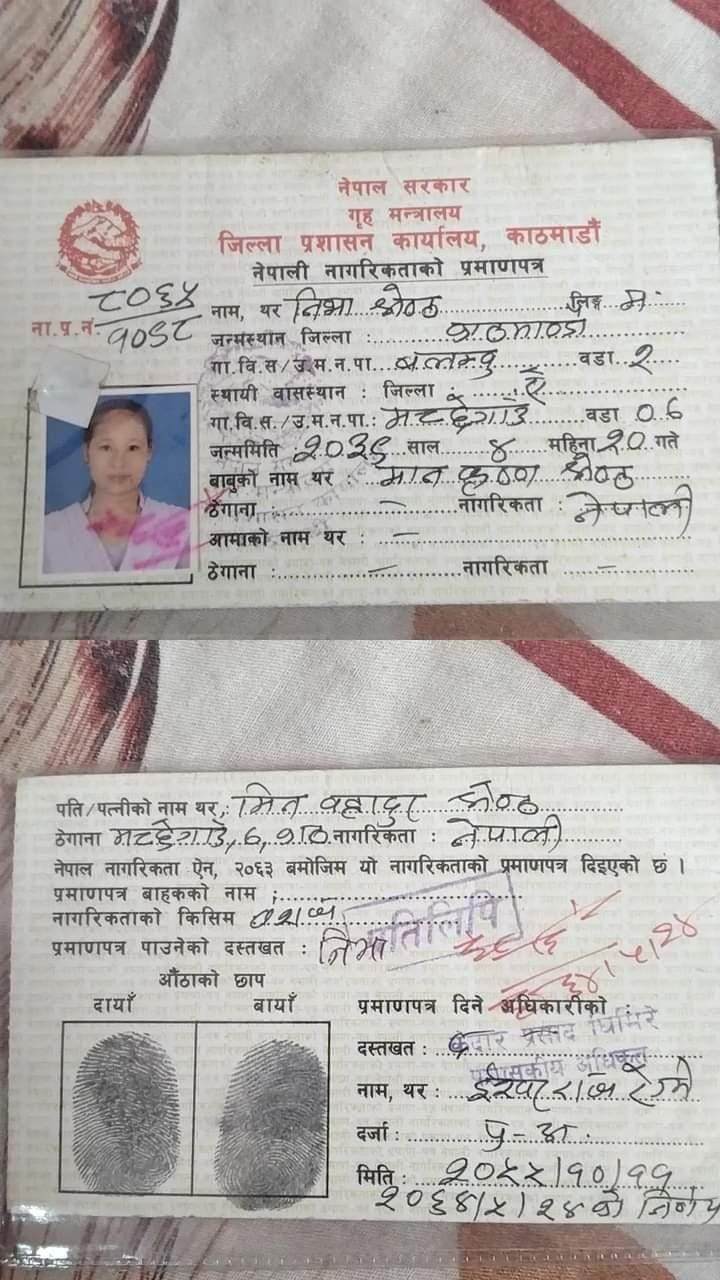 नेपाल सरकार
गृह मन्त्रालय
जिल्ला प्रशासन कार्यालय, काठमाडौं
नेपाली नागरिकताको प्रमाणपत्र
ना.प्र.नं. ८०६५ / १०९८
नाम, थर निभा श्रेष्ठ लिङ्ग म.
जन्मस्थान जिल्ला : काठमाण्डौ
गा.वि.स/उ.म.न.पा. बलम्बु वडा २
स्थायी वासस्थान : जिल्ला : ऐ
गा.वि.स./उ.म.न.पा.: मच्छेगाउँ वडा ०६
जन्ममिति : २०३६ साल ४ महिना २० गते
बाबुको नाम थर : मान कृष्ण श्रेष्ठ
ठेगाना : – नागरिकता : नेपाली
आमाको नाम थर : –
ठेगाना : – नागरिकता –
पति/पत्नीको नाम थर : मिन बहादुर श्रेष्ठ
ठेगाना मच्छेगाउँ, ६, काठ नागरिकता : नेपाली
नेपाल नागरिकता ऐन, २०६३ बमोजिम यो नागरिकताको प्रमाणपत्र दिइएको छ ।
प्रमाणपत्र बाहकको नाम :
नागरिकताको किसिम वंशज
प्रतिलिपि
प्रमाणपत्र पाउनेको दस्तखत : निभा
औंठाको छाप
दायाँ बायाँ
प्रमाणपत्र दिने अधिकारीको :
दस्तखत : केदार प्रसाद घिमिरे
प्रशासकीय अधिकृत
नाम, थर : ईश्वर राज रेग्मी
दर्जा : प्र-अ.
मिति : २०५५/१०/११
२०६४/५/२४ को निर्णय